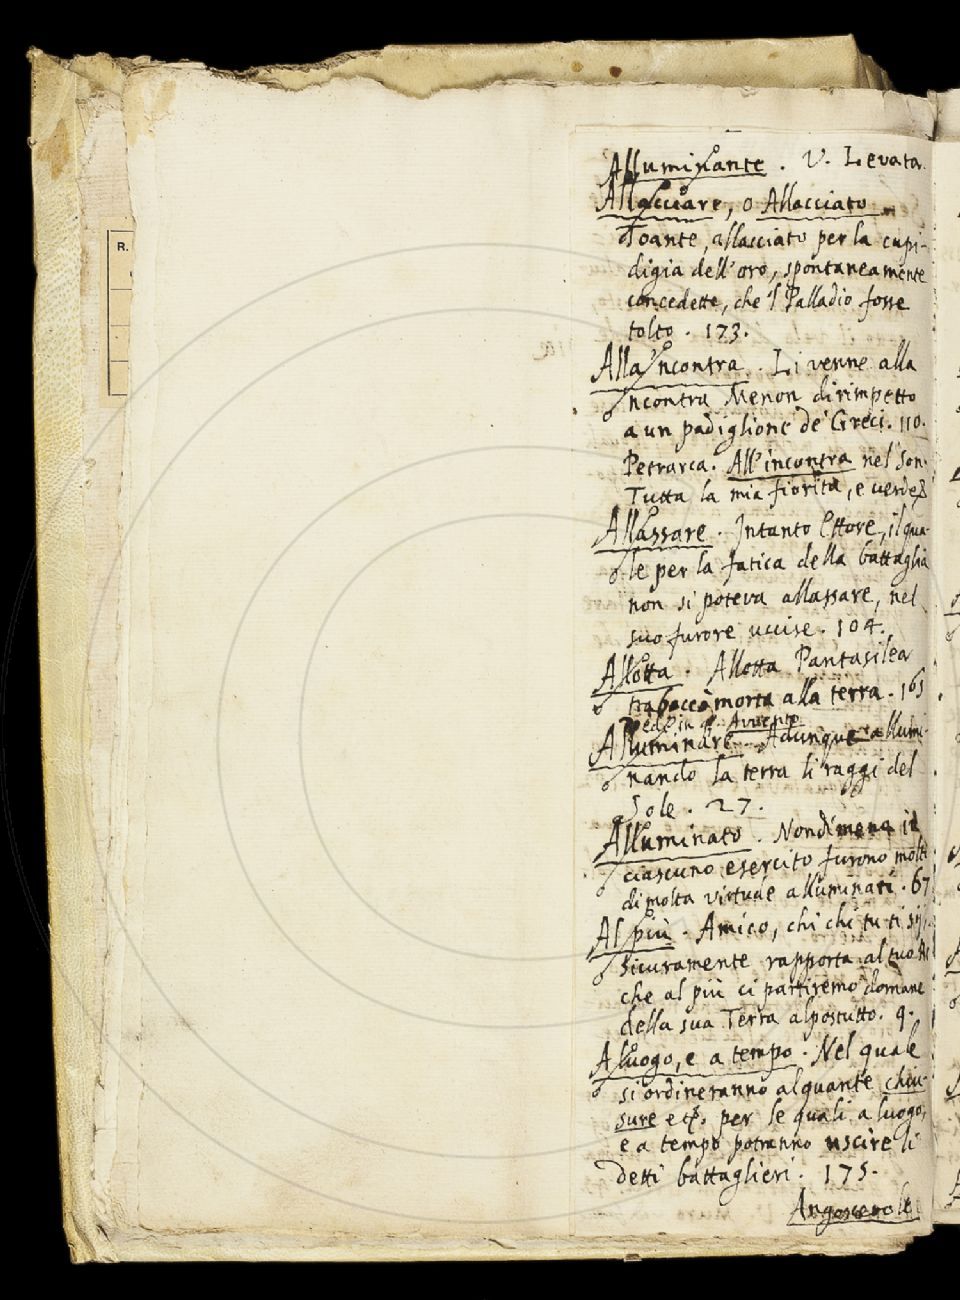 Alluminante. V. Levata.
Allacciare, o Allacciato
Toante, allacciato per la cupi-
digia dell'oro, spontaneamente
concedette, che 'l Palladio fosse
tolto. 173.
Alla 'ncontra. Li venne alla
'ncontra Menon dirimpetto
a un padiglione de' Greci. 110.
Petrarca. All'incontra nel Son.
Tutta la mia fiorita, e verde
Allassare. Intanto Ettore, il qua-
le per la fatica della battaglia
non si poteva allassare, nel
suo furore uccise. 104.
Allotta. Allotta Pantasilea
traboccò morta alla terra. 165
Avvento
Alluminare. Adunque allumi-
nando la terra li raggi del
Sole. 27.
Alluminato. Nondimeno in
ciascuno esercito furono molti
di molta virtude alluminati. 67
Al più. Amico, chi chi tu ti sij,
sicuramente rapporta al tuo Re
che al più ci partiremo domane
della sua Terra alpostutto. 9.
A luogo, e a tempo. Nel quale
si ordineranno alquante chiu-
sure etc. per le quali a luogo,
e a tempo potranno uscire li
detti battaglieri. 175.